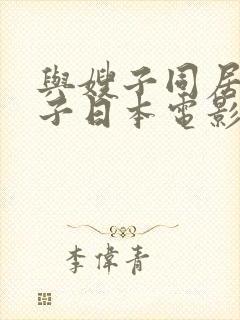 與嫂子同居
子日本電影
李偉青